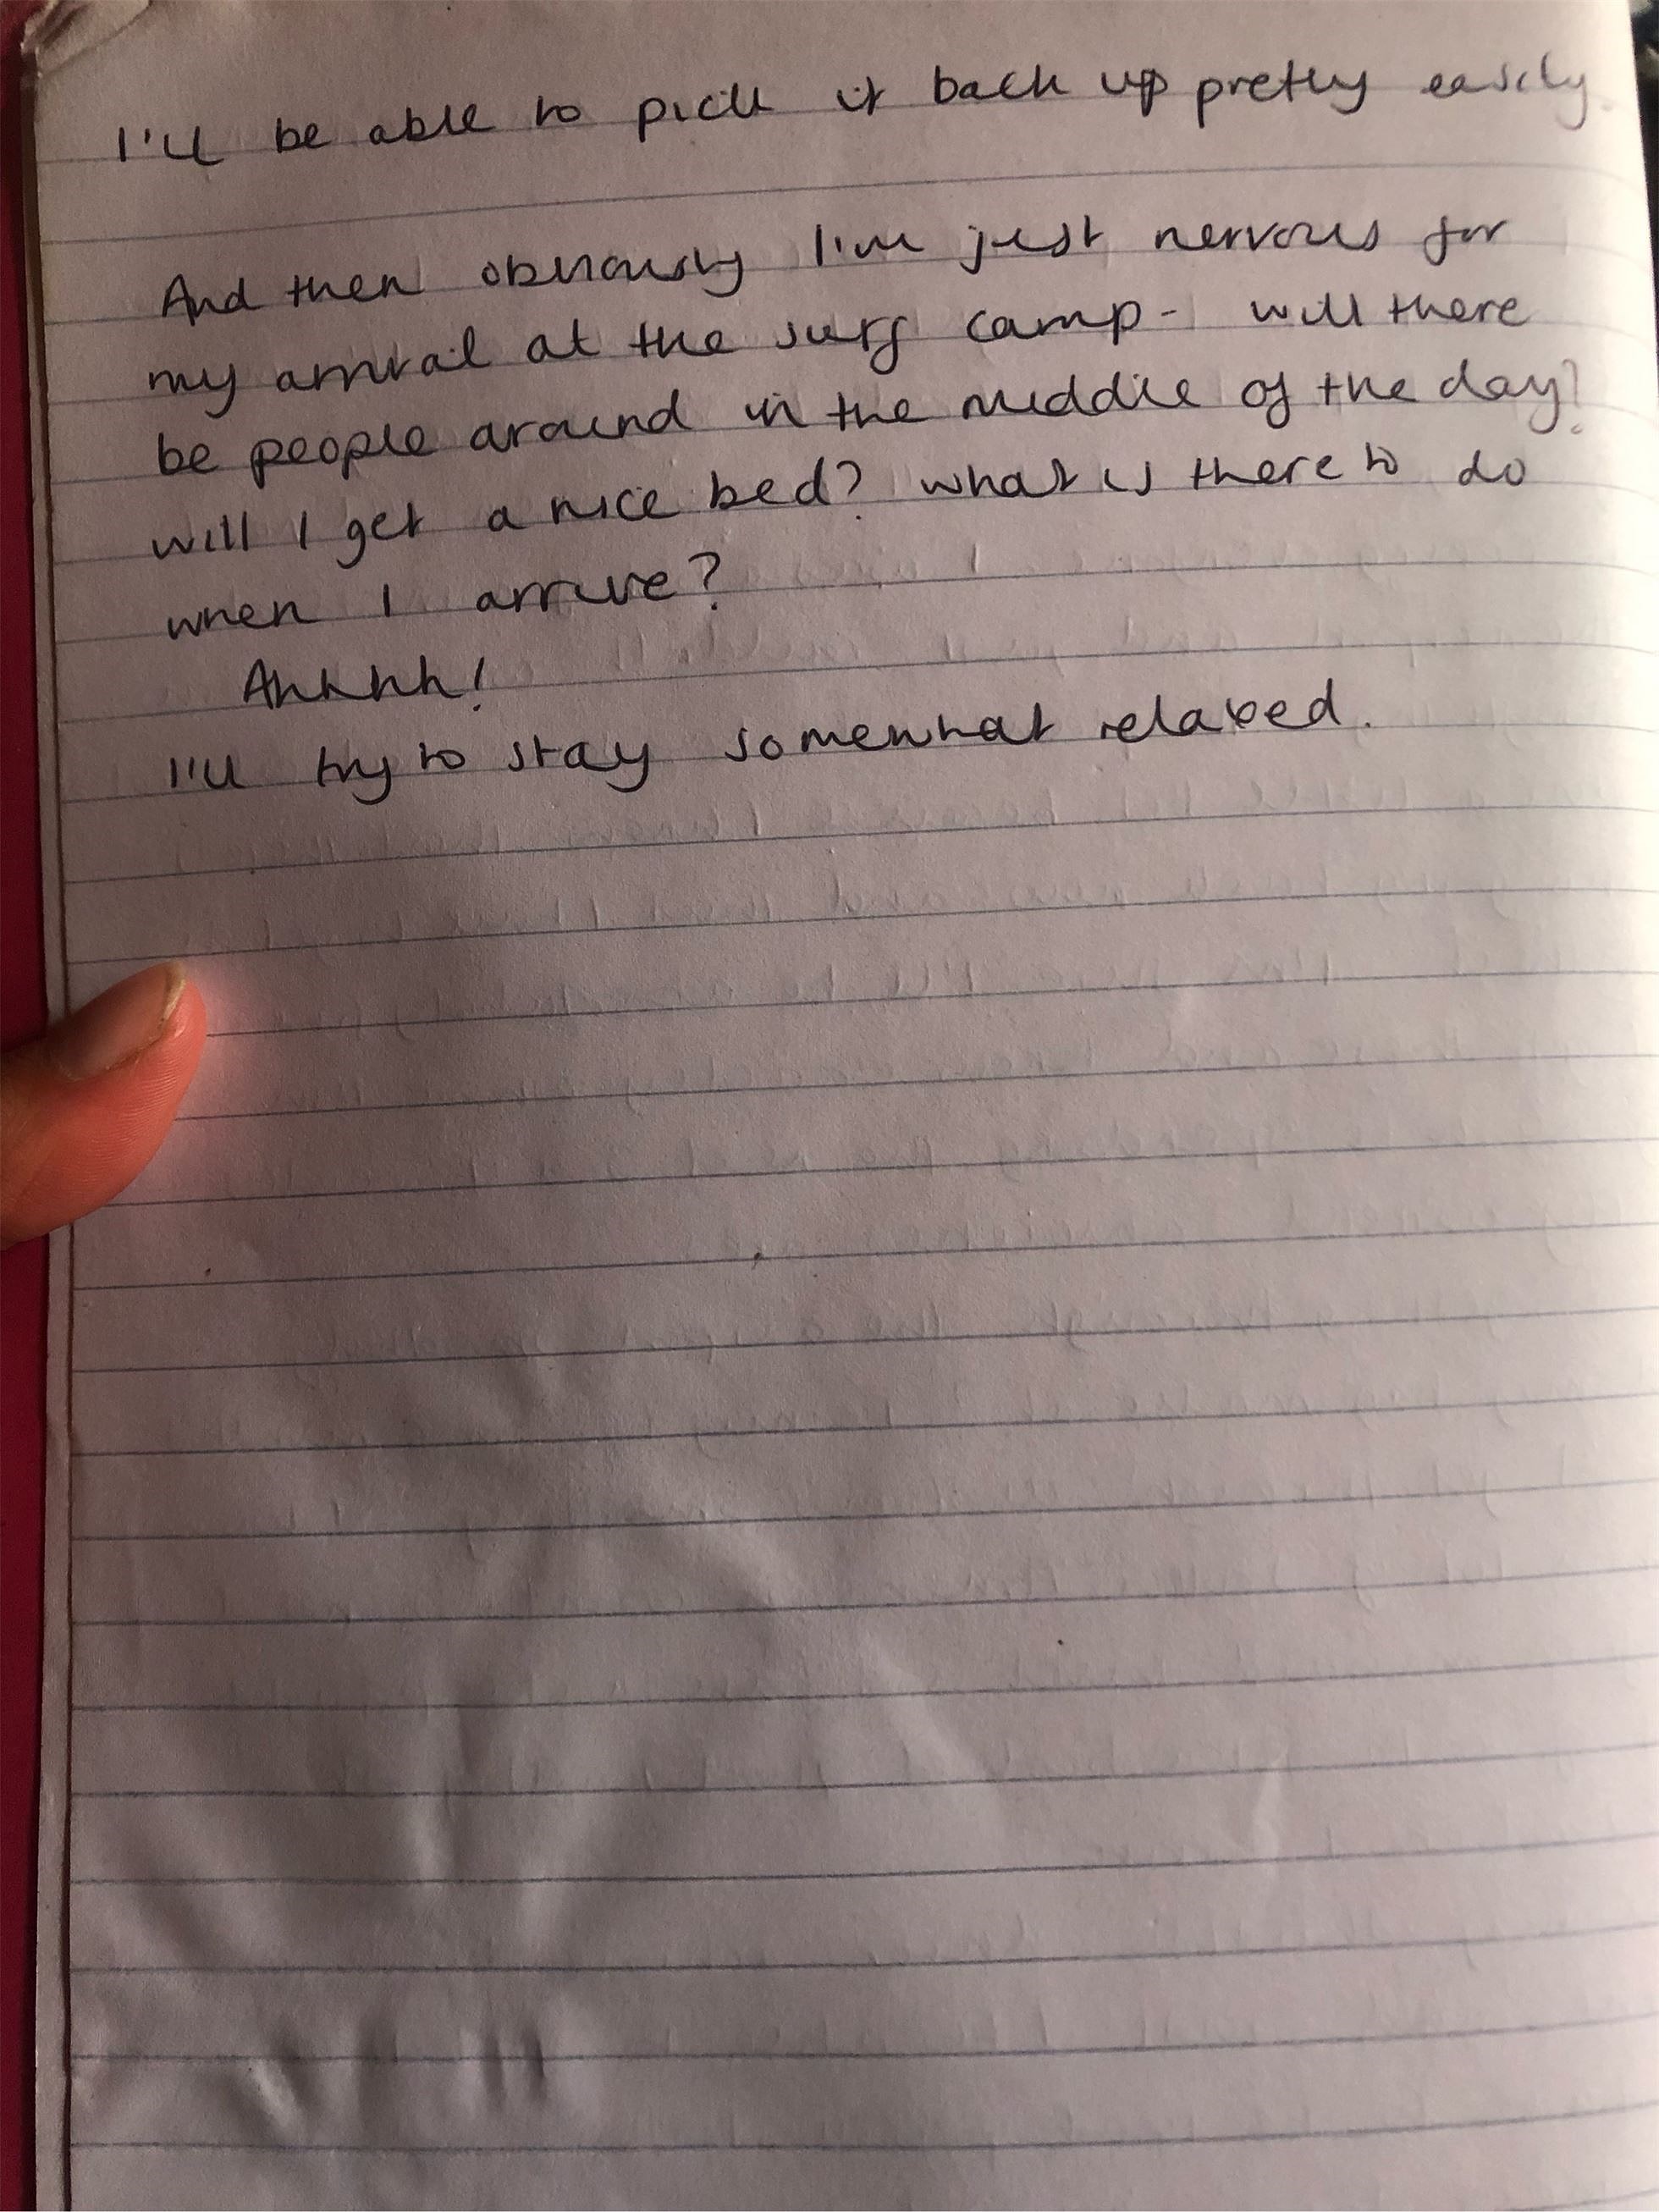 I'll be able to pick it back up pretty easily.
And then obviously I'm just nervous for
my arrival at the surf camp - will there
be people around in the middle of the day?
will I get a nice bed? what is there to do
when I arrive?
Ahhhh!
I'll try to stay somewhat relaxed.